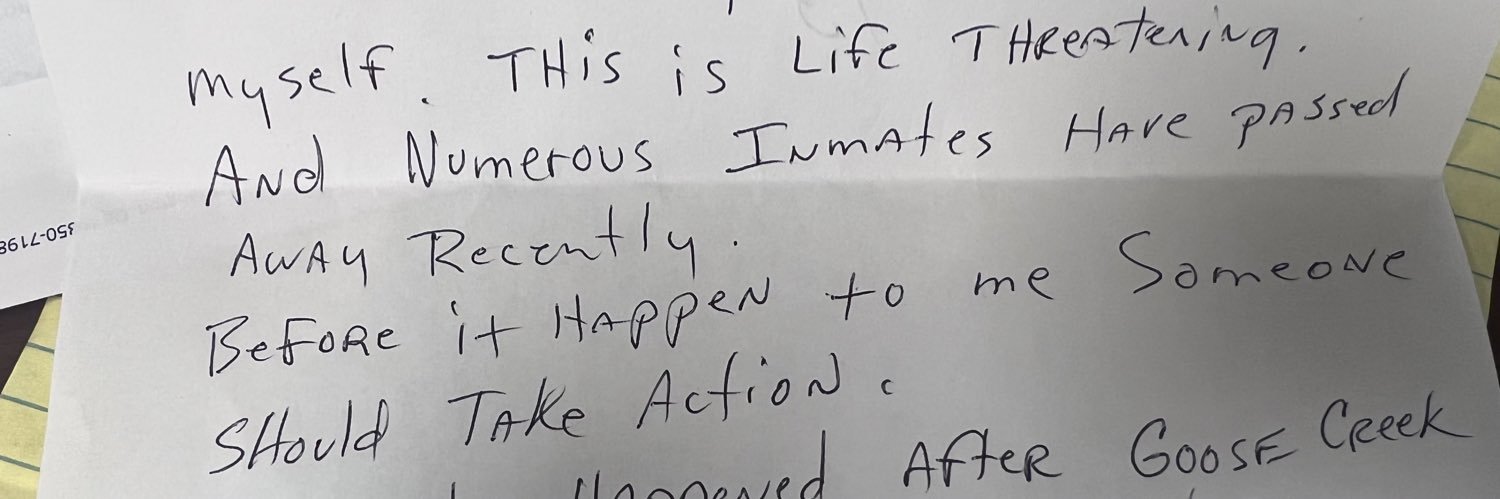 myself. THis is Life THReatening.
And Numerous Inmates Have passed
Away Recently.
Before it Happen to me Someone
Should Take Action.
Happened After Goose Creek
350-7198